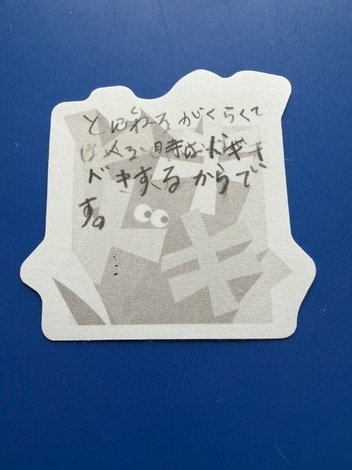 とんねるがくらくて
は入る時はドキ
ドキするからで
す。